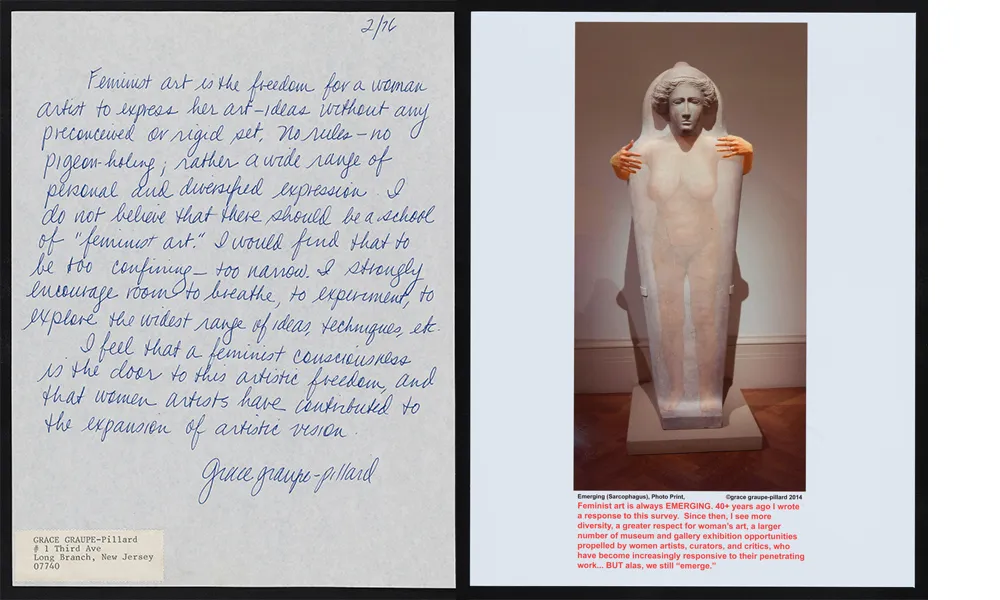 2/76
Feminist art is the freedom for a woman
artist to express her art-ideas without any
preconceived or rigid set. No rules - no
pigeon-holing; rather a wide range of
personal and diversified expression. I
do not believe that there should be a school
of "feminist art." I would find that to
be too confining - too narrow. I strongly
encourage room to breathe, to experiment, to
explore the widest range of ideas, techniques, etc.
I feel that a feminist consciousness
is the door to this artistic freedom, and
that women artists have contributed to
the expansion of artistic vision.
Grace graupe-pillard
GRACE GRAUPE-Pillard
# 1 Third Ave
Long Branch, New Jersey
07740
Emerging (Sarcophagus), Photo Print, ©grace graupe-pillard 2014
Feminist art is always EMERGING. 40+ years ago I wrote
a response to this survey. Since then, I see more
diversity, a greater respect for woman's art, a larger
number of museum and gallery exhibition opportunities
propelled by women artists, curators, and critics, who
have become increasingly responsive to their penetrating
work... BUT alas, we still "emerge."